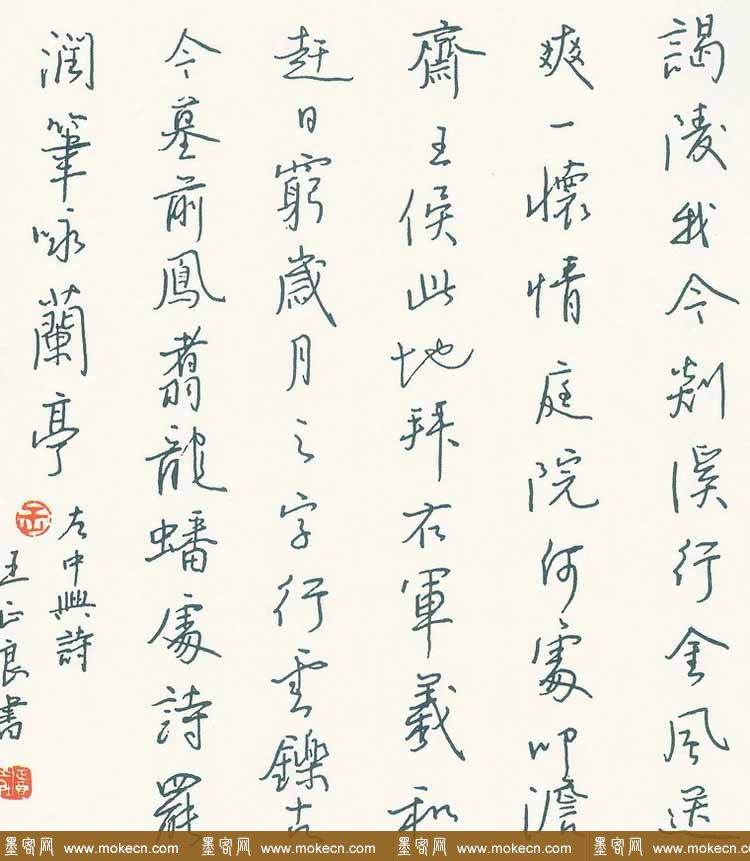 謁陵我今剡溪行金風送
爽一懷情庭院何處叩澹
齋王侯此地拜右軍羲和
赶日窮歲月之字行雲鑠古
今墓前鳳翥龍蟠處詩罷
潤筆咏蘭亭
左中興詩
王正良書
墨客网 www.mokecn.com 墨客网 www.mokecn.com 墨客网 www.mokecn.com 墨客网 www.mokecn.com